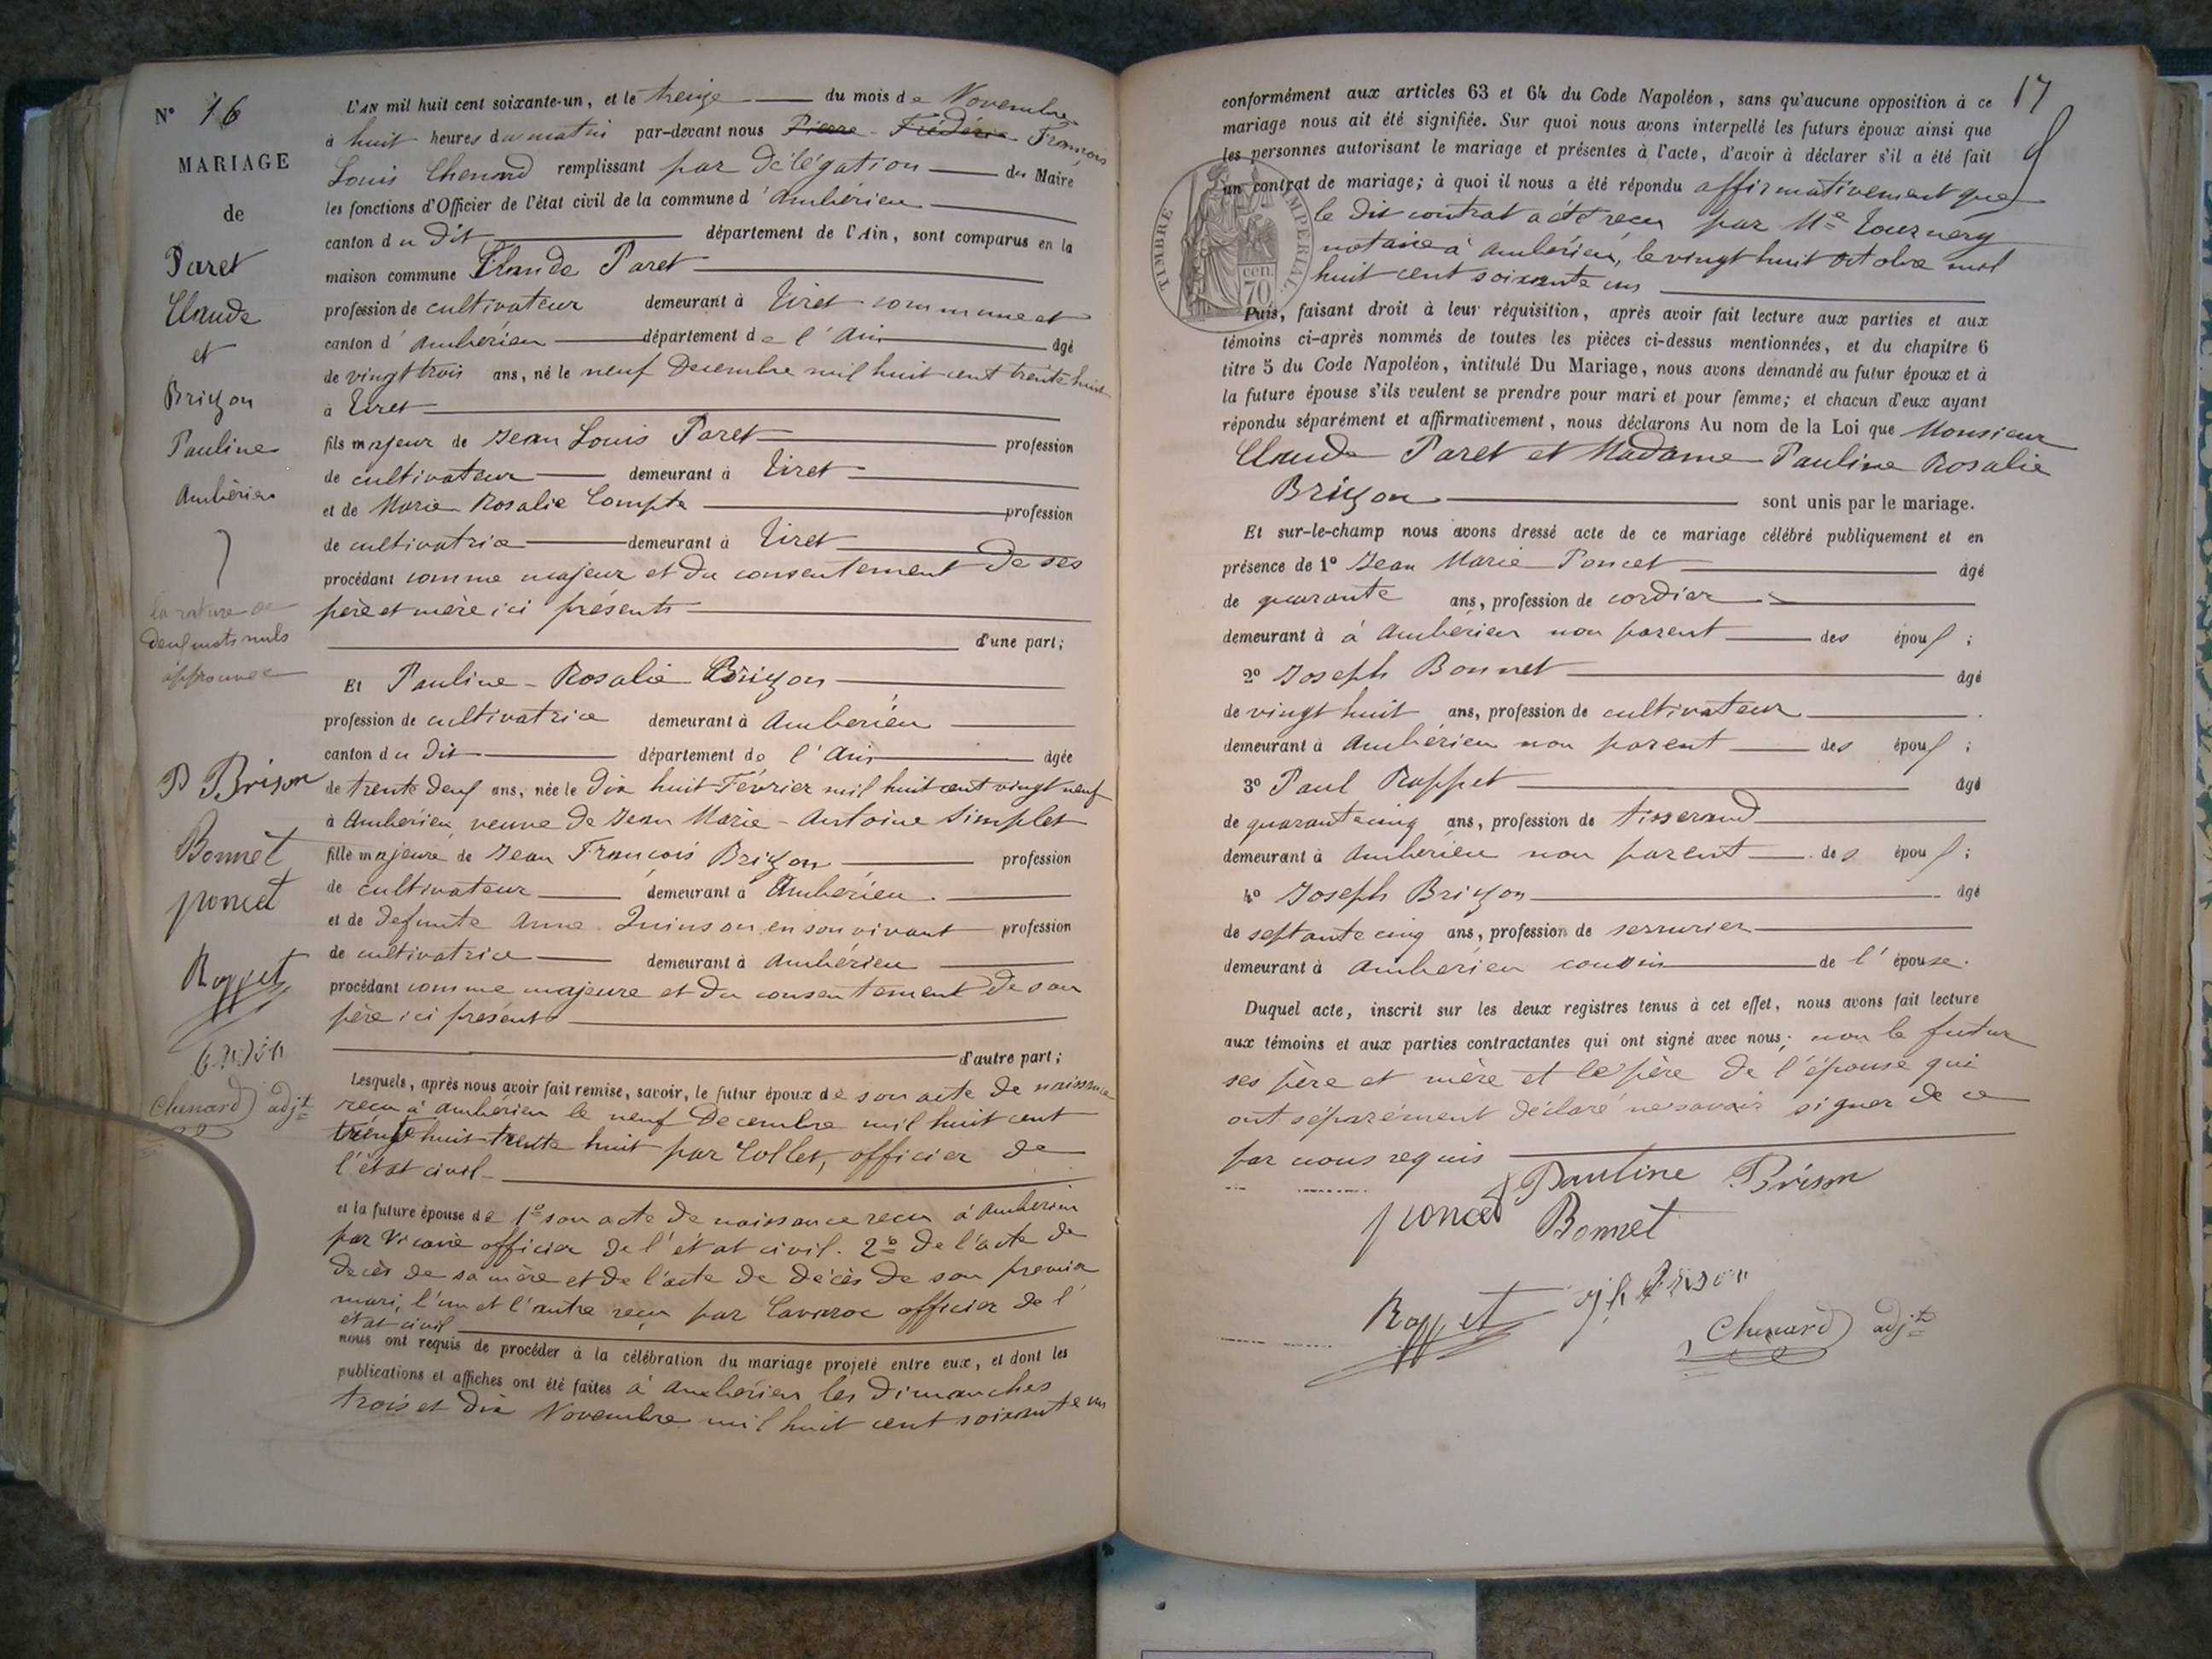 N° 16
MARIAGE
de
Paret
Claude
et
Brizon
Pauline
Ambérieu
la rature de
deux mots nuls
approuvée
P Brison
Bonnet
poncet
Roppet
Chenard adjt
L'AN mil huit cent soixante-un, et le treize du mois de Novembre
à huit heures du matin par-devant nous Pierre-Frédéric François
Louis Chenard remplissant par délégation du Maire
les fonctions d'Officier de l'état civil de la commune d'Ambérieu
canton du dit département de l'Ain, sont comparus en la
maison commune Claude Paret
profession de cultivateur demeurant à Tiret commune et
canton d'Ambérieu département de l'Ain âgé
de vingt trois ans, né le neuf Decembre mil huit cent trente huit
à Tiret
fils majeur de Jean Louis Paret profession
de cultivateur demeurant à Tiret
et de Marie Rosalie Compte profession
de cultivatrice demeurant à Tiret
procédant comme majeur et du consentement de ses
père et mère ici présents
d'une part;
Et Pauline-Rosalie Brizon
profession de cultivatrice demeurant à Ambérieu
canton du dit département de l'Ain âgée
de trente deux ans, née le dix huit Février mil huit cent vingt neuf
à Ambérieu, veuve de Jean Marie-Antoine Simplet
fille majeure de Jean François Brizon profession
de cultivateur demeurant à Ambérieu
et de defunte Anne Quinson, en son vivant profession
de cultivatrice demeurant à Ambérieu
procédant comme majeure et du consentement de son
père ici présent
d'autre part;
Lesquels, après nous avoir fait remise, savoir, le futur époux de son acte de naissance
reçu à Ambérieu le neuf Decembre mil huit cent
huit trente huit par Collet, officier de
l'état civil
et la future épouse de 1° son acte de naissance reçu à Ambérieu
par Vicaire officier de l'état civil. 2° De l'acte de
décès de sa mère et de l'acte de décès de son premier
mari, l'un et l'autre reçu par Cavaroc officier de l'
état civil
nous ont requis de procéder à la célébration du mariage projeté entre eux, et dont les
publications et affiches ont été faites à Ambérieu les dimanches
trois et dix Novembre mil huit cent soixante un
17
conformément aux articles 63 et 64 du Code Napoléon, sans qu'aucune opposition à ce
mariage nous ait été signifiée. Sur quoi nous avons interpellé les futurs époux ainsi que
les personnes autorisant le mariage et présentes à l'acte, d'avoir à déclarer s'il a été fait
un contrat de mariage; à quoi il nous a été répondu affirmativement que
le dit contrat a été reçu par Me Tournery
notaire à Ambérieu, le vingt huit octobre mil
huit cent soixante un
TIMBRE IMPERIAL
cen. 70
Puis, faisant droit à leur réquisition, après avoir fait lecture aux parties et aux
témoins ci-après nommés de toutes les pièces ci-dessus mentionnées, et du chapitre 6
titre 5 du Code Napoléon, intitulé Du Mariage, nous avons demandé au futur époux et à
la future épouse s'ils veulent se prendre pour mari et pour femme; et chacun d'eux ayant
répondu séparément et affirmativement, nous déclarons Au nom de la Loi que Monsieur
Claude Paret et Madame Pauline Rosalie
Brizon sont unis par le mariage.
Et sur-le-champ nous avons dressé acte de ce mariage célébré publiquement et en
présence de 1° Jean Marie Poncet âgé
de quarante ans, profession de cordier
demeurant à à Ambérieu non parent des époux;
2° Joseph Bonnet âgé
de vingt huit ans, profession de cultivateur
demeurant à Ambérieu non parent des époux;
3° Paul Roppet âgé
de quarante cinq ans, profession de tisserand
demeurant à Ambérieu non parent des époux;
4° Joseph Brizon âgé
de septante cinq ans, profession de serrurier
demeurant à Ambérieu cousin de l'épouse.
Duquel acte, inscrit sur les deux registres tenus à cet effet, nous avons fait lecture
aux témoins et aux parties contractantes qui ont signé avec nous; non le futur
ses père et mère et le père de l'épouse qui
ont séparément déclaré ne savoir signer de ce
par nous requis
Pauline Brison
poncet Bonnet
Roppet jph Brison
Chenard adjt